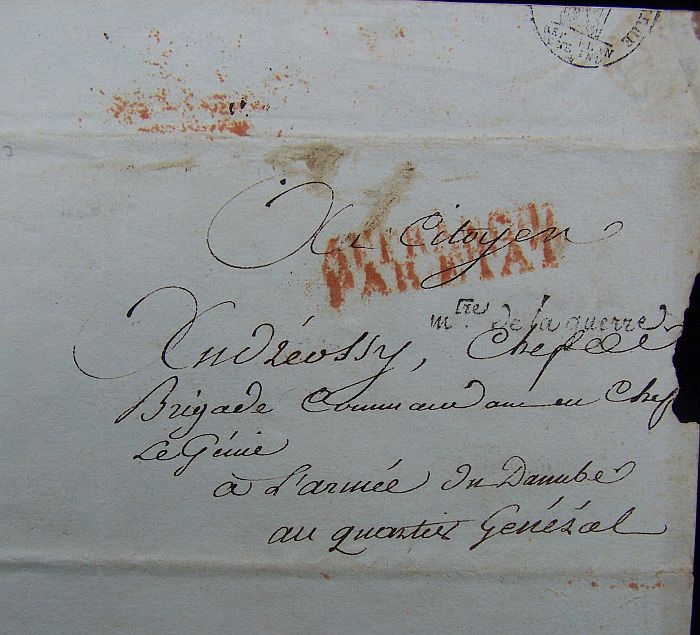 Au Citoyen
AFFRANCHI
PAR ETAT
mtre. de la guerre
Andréossy, Chef de
Brigade Commandant en Chef
Le Génie
à L'armée du Danube
au quartier Général